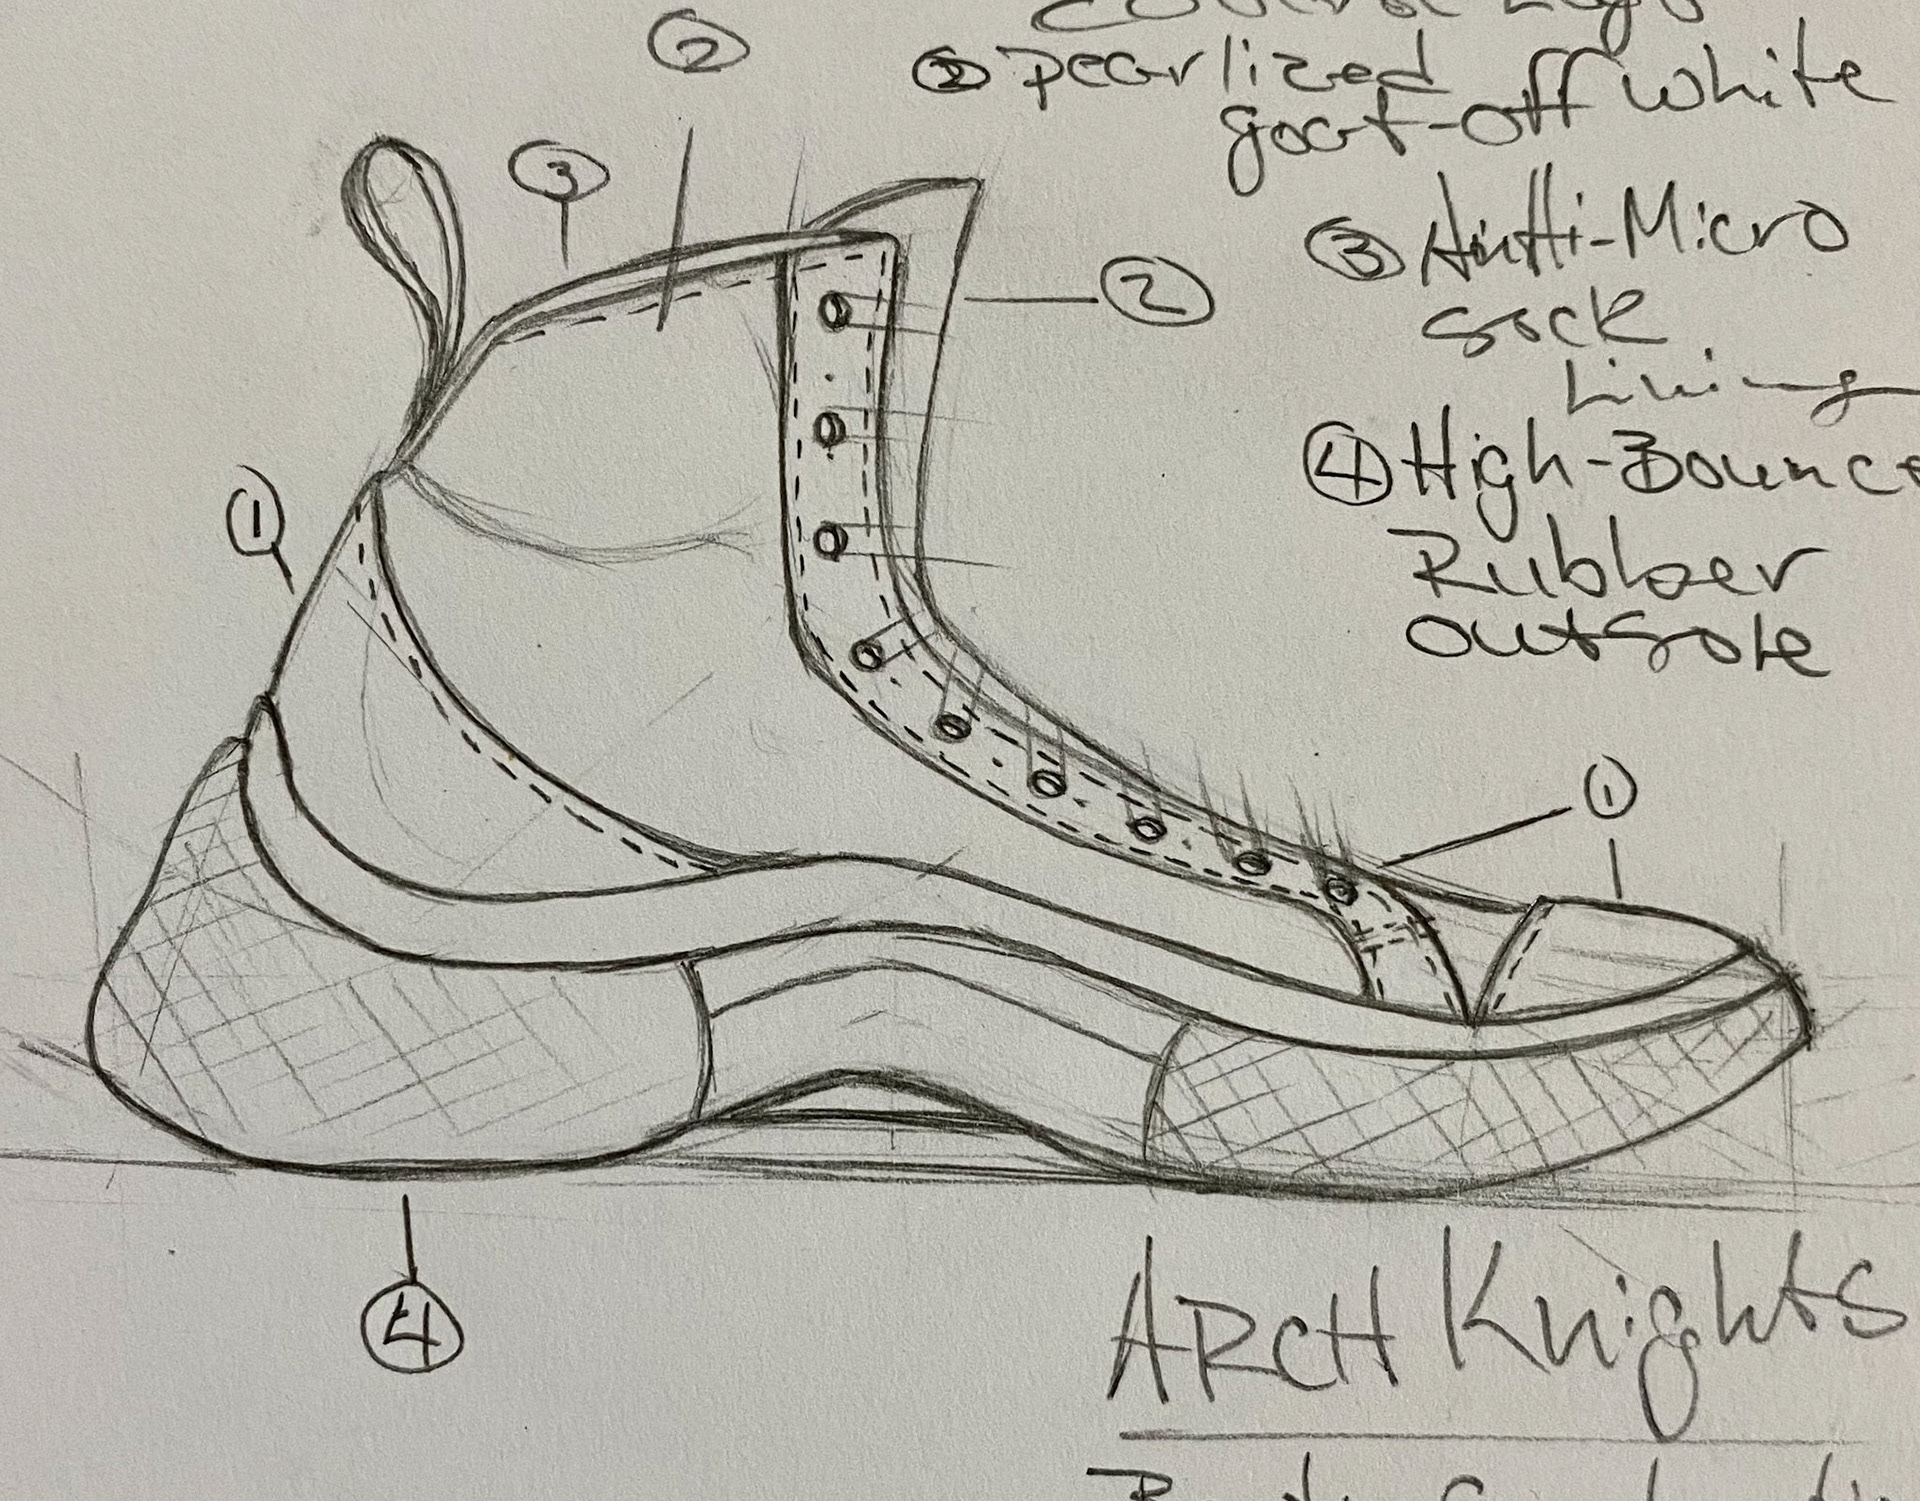 ②
② Pearlized
goat-off white
③
③ Antti-Micro
sock
Lining
②
④ High-Bounce
Rubber
outsole
①
①
④
ARCH Knights